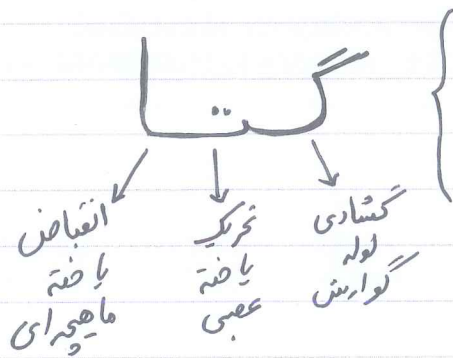 گتا
گشادی
لوله
گوارش
تحریک
یاخته
عصبی
انقباض
یاخته
ماهیچه‌ای